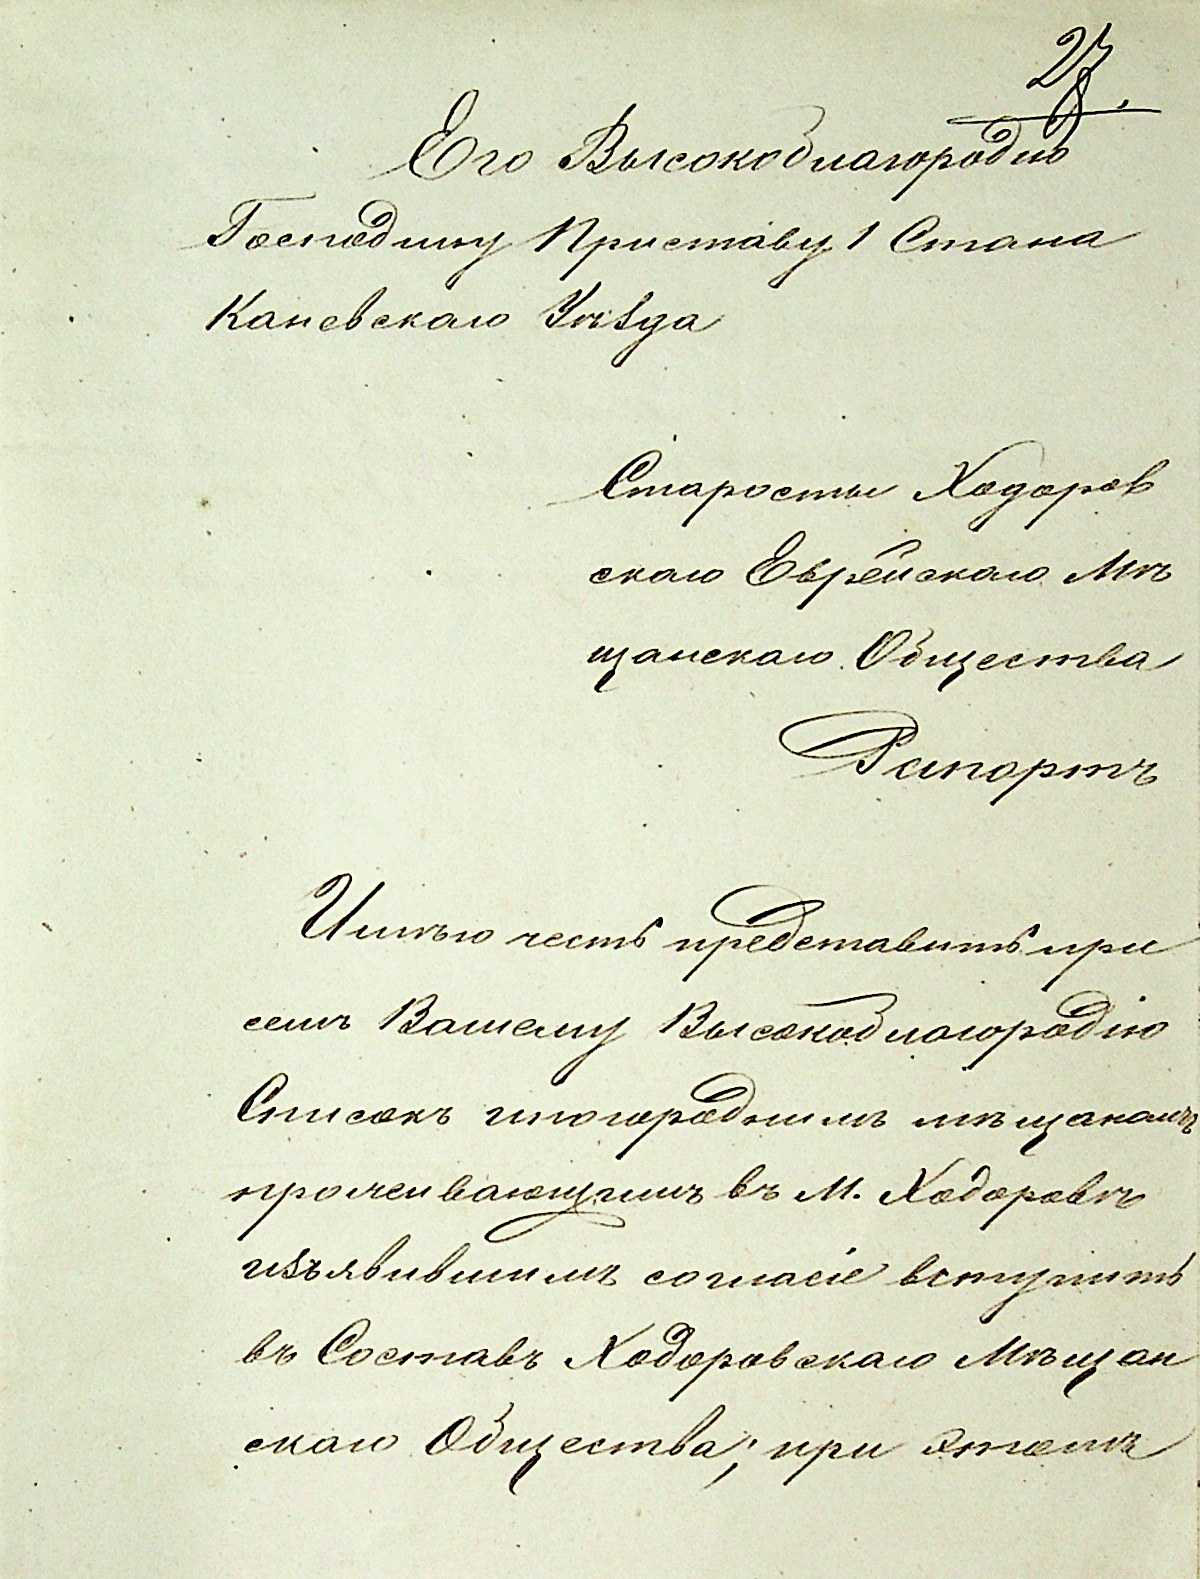 27.
Его Высокоблагородию
Господину Приставу 1 Стана
Каневскаго Уѣзда
Старосты Ходоров
скаго Еврейскаго Мѣ
щанскаго Общества
Рапортъ
Имѣю честь представить при
семъ Вашему Высокоблагородію
Списокъ иногороднимъ мѣщанамъ
проживающимъ въ М. Ходоровѣ
изъявившимъ согласіе вступить
въ Составъ Ходоровскаго Мѣщан
скаго Общества; при этомъ